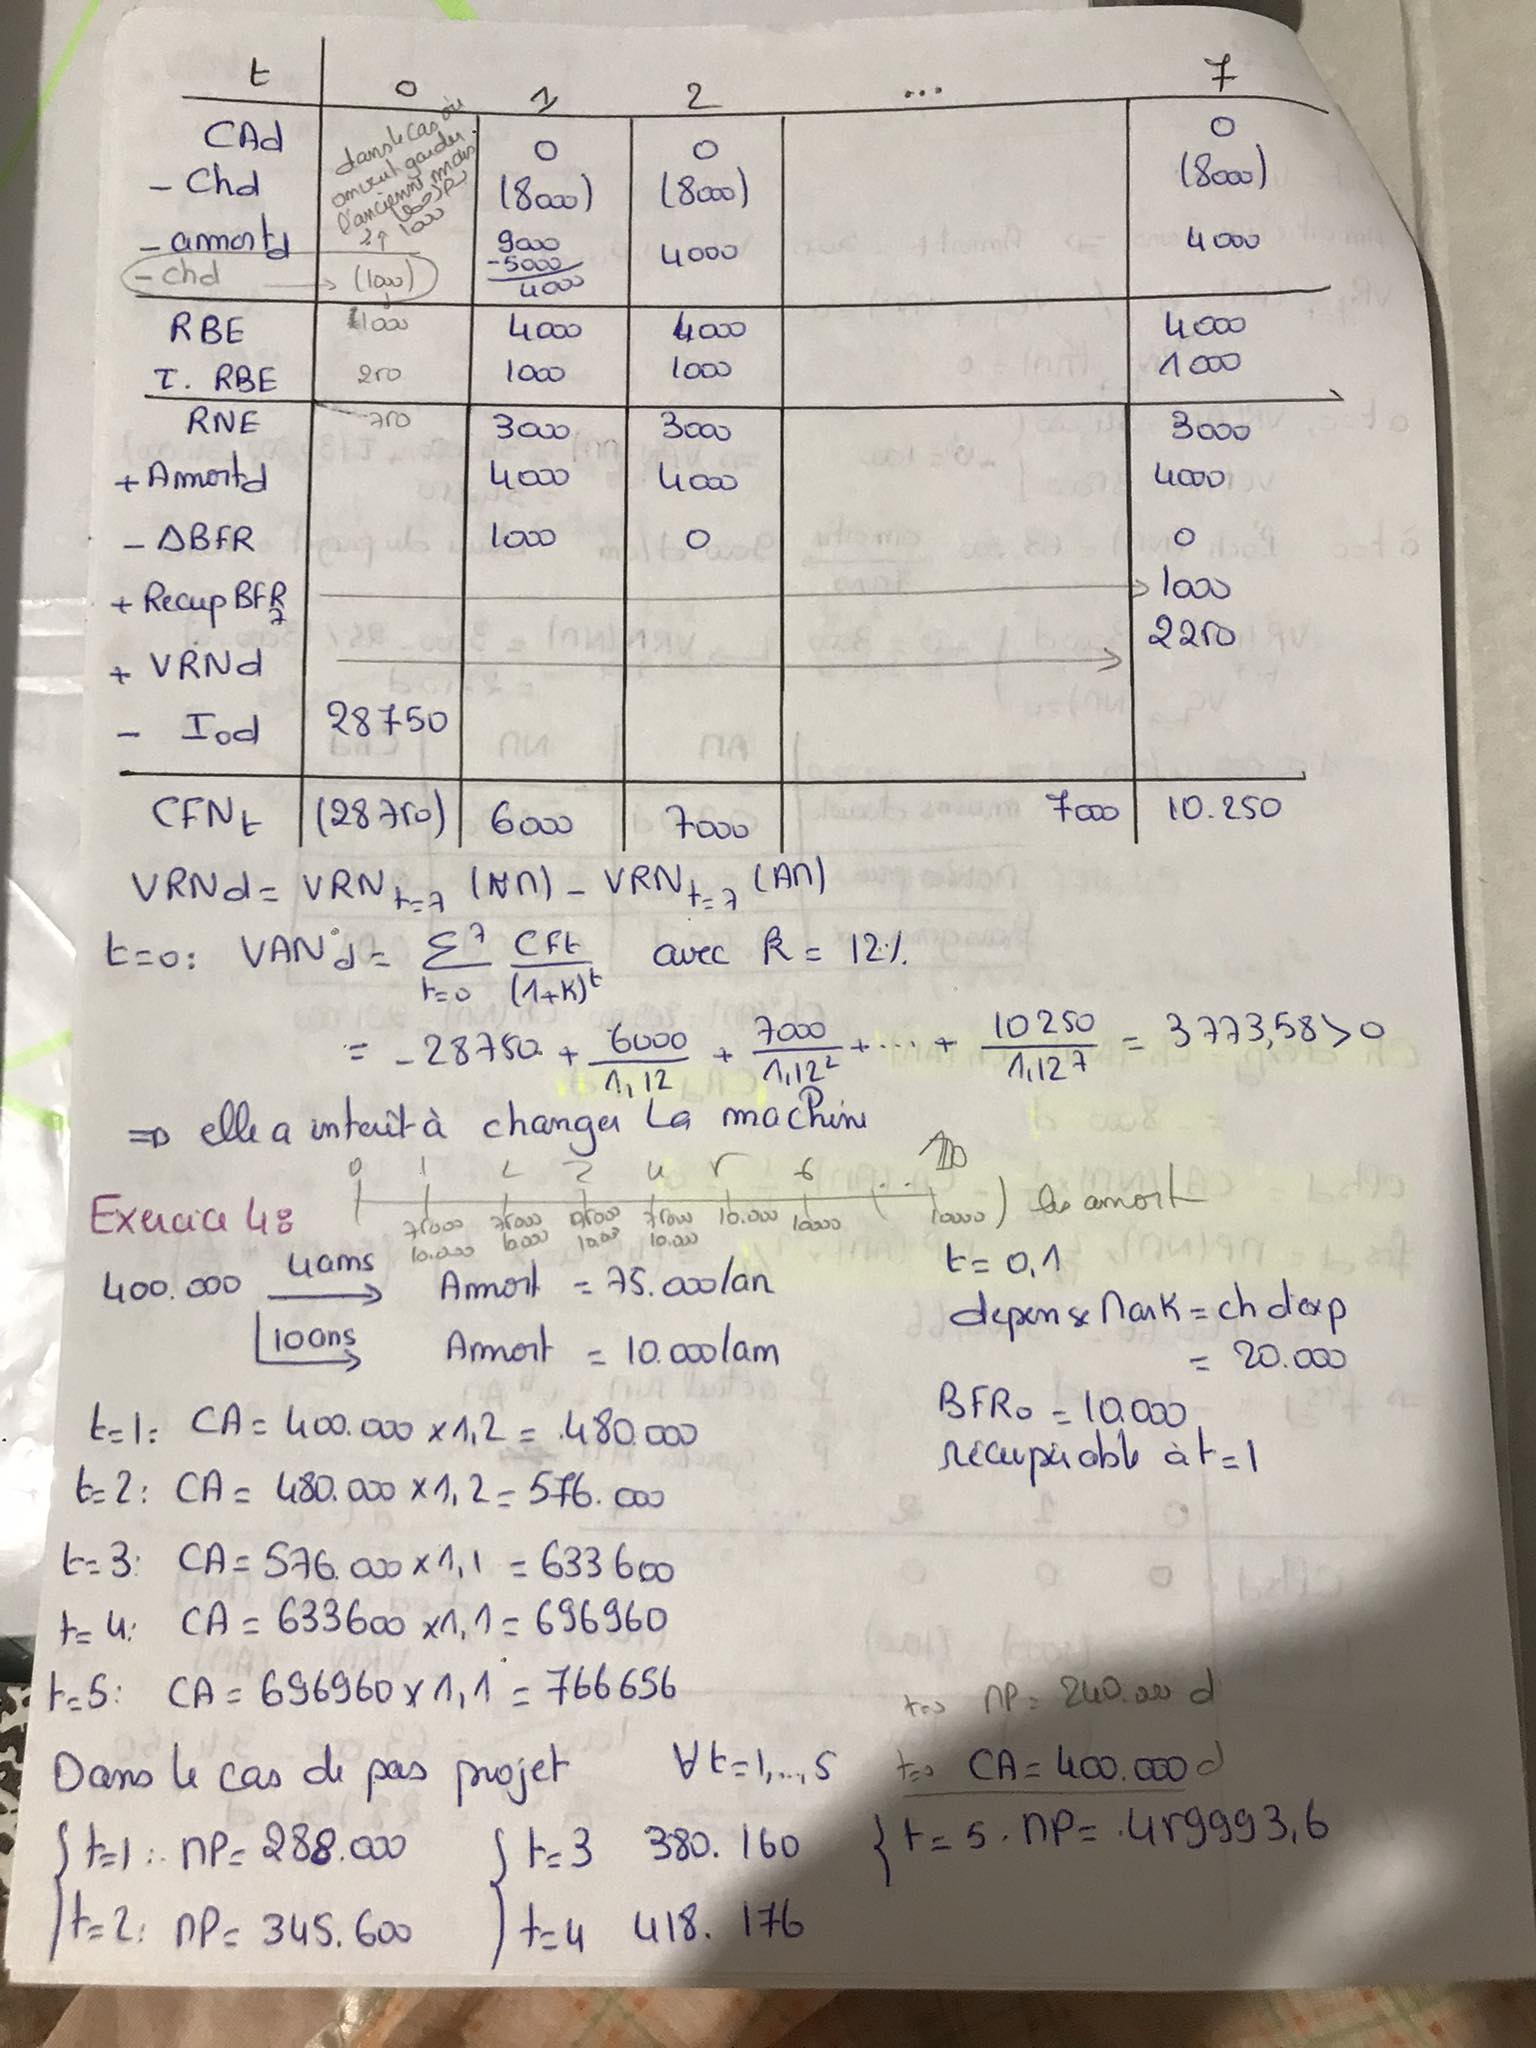 t 0 1 2 ... 7
CAd 0 0 0
dans le cas où
on veut garder
l'ancienne mais
1000
- Chd (8000) (8000) (8000)
- amortd 9000 4000 4000
-5000
4000
- chd (1000)
RBE 1000 4000 4000 4000
τ. RBE 250 1000 1000 1000
RNE 750 3000 3000 3000
+ Amortd 4000 4000 4000
- ΔBFR 1000 0 0
+ Recup BFR7 1000
+ VRNd 2250
- Iod 28750
CFNt (28750) 6000 7000 7000 10.250
VRNd = VRN t=7 (NM) - VRN t=7 (AM)
t=0: VANd = Σ7 t=0 CFt/(1+K)^t avec K = 12%
= -28750 + 6000/1,12 + 7000/1,12² + ... + 10250/1,12^7 = 3773,58 > 0
⇒ elle a interêt à changer la machine
0 1 2 3 4 5 6 ... 10
Exercice 4:
75000 75000 75000 75000 10.000 10000 10000) les amort
10.000 10.000 10.000 10.000
400.000 4ans Amort = 75.000/an
10ans Amort = 10.000/an
t=0,1
depense Mark = ch dexp
= 20.000
BFR0 = 10.000
récupérable à t=1
t=1: CA = 400.000 x 1,2 = 480.000
t=2: CA = 480.000 x 1,2 = 576.000
t=3: CA = 576.000 x 1,1 = 633600
t=4: CA = 633600 x 1,1 = 696960
t=5: CA = 696960 x 1,1 = 766656
t=0 MP = 240.000 d
Dans le cas de pas projet ∀t=1,...,5 t=0 CA = 400.000 d
{t=1: MP = 288.000 {t=3 380.160 {t=5. MP = 459993,6
t=2: MP = 345.600 t=4 418.176